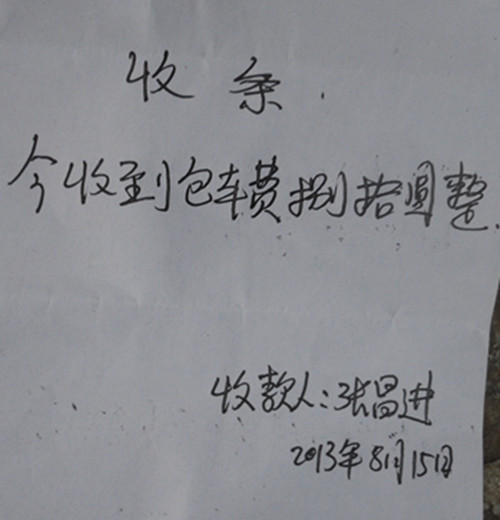 收条.
今收到包车费捌拾圆整.
收款人:张昌进
2013年8月15日